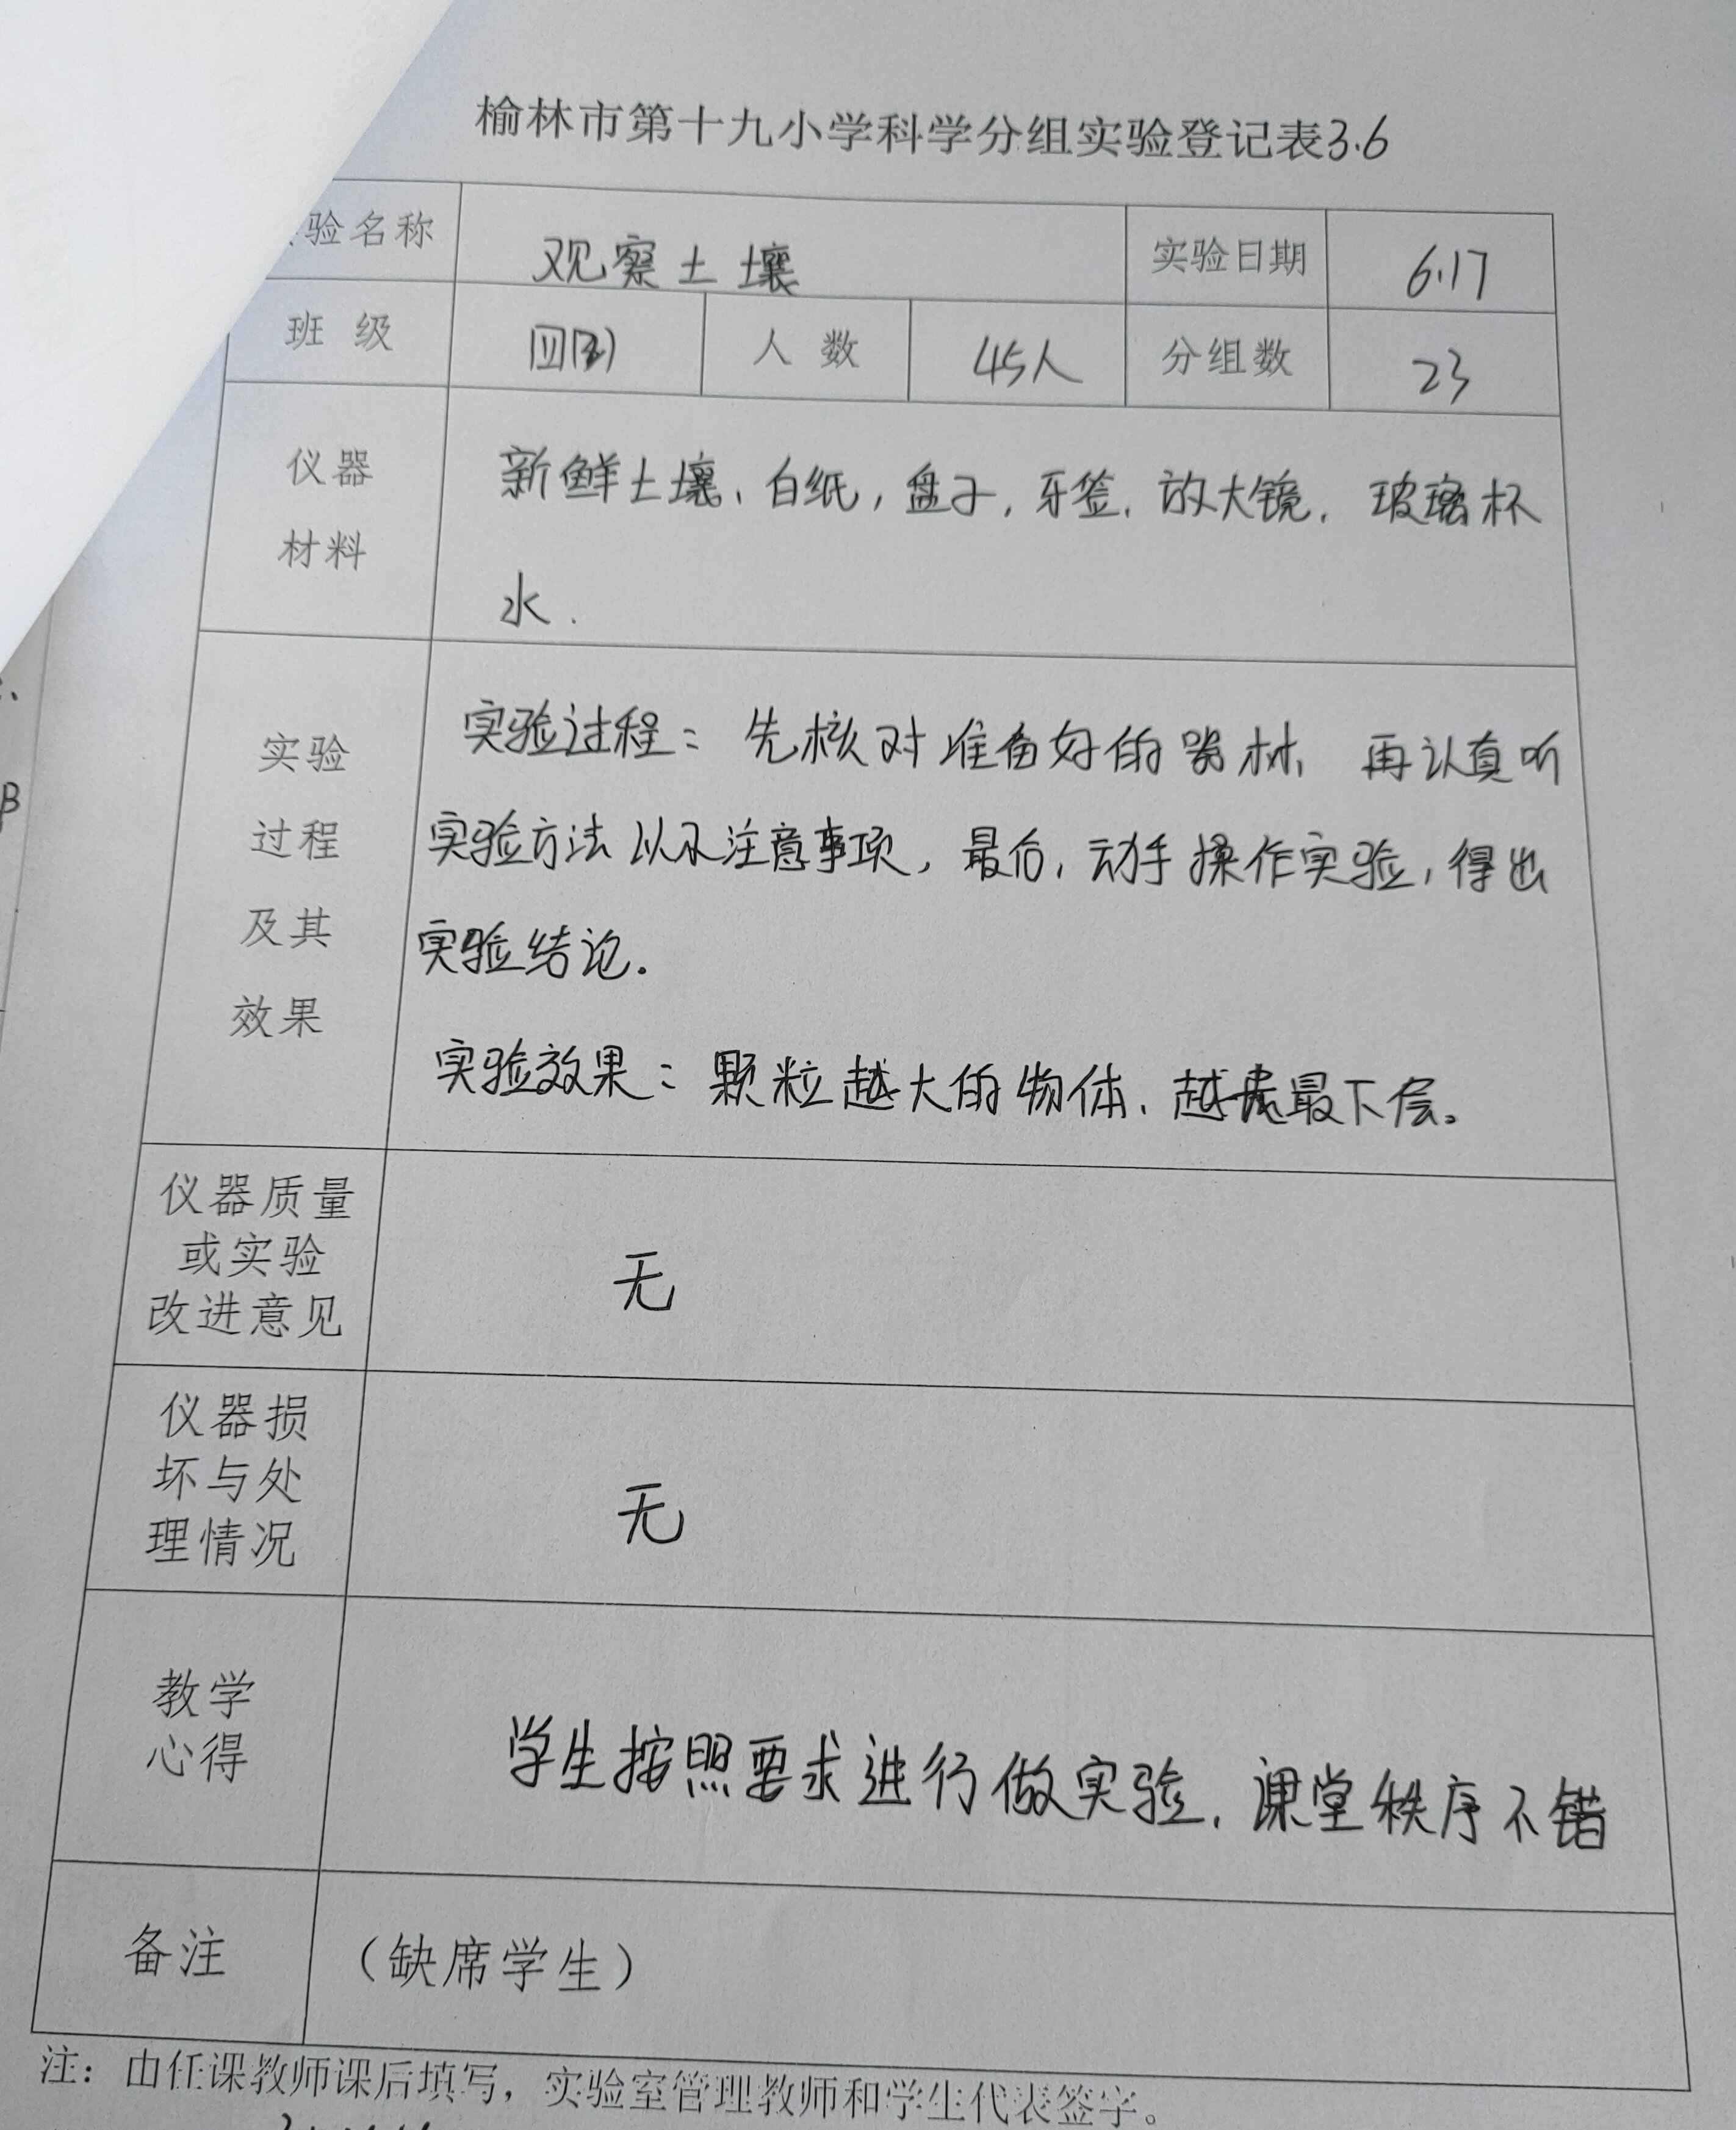 榆林市第十九小学科学分组实验登记表3.6
验名称 观察土壤 实验日期 6.17
班 级 人 数 45人 分组数 23
仪器
材料
新鲜土壤、白纸,盘子,牙签.放大镜.玻璃杯
水.
实验
过程
及其
效果
实验过程:先核对准备好的器材,再认真听
实验方法以及注意事项,最后,动手操作实验,得出
实验结论.
实验效果:颗粒越大的物体、越最下层。
仪器质量
或实验
改进意见
无
仪器损
坏与处
理情况
无
教学
心得
学生按照要求进行做实验.课堂秩序不错
备注 (缺席学生)
注:由任课教师课后填写,实验室管理教师和学生代表签字。